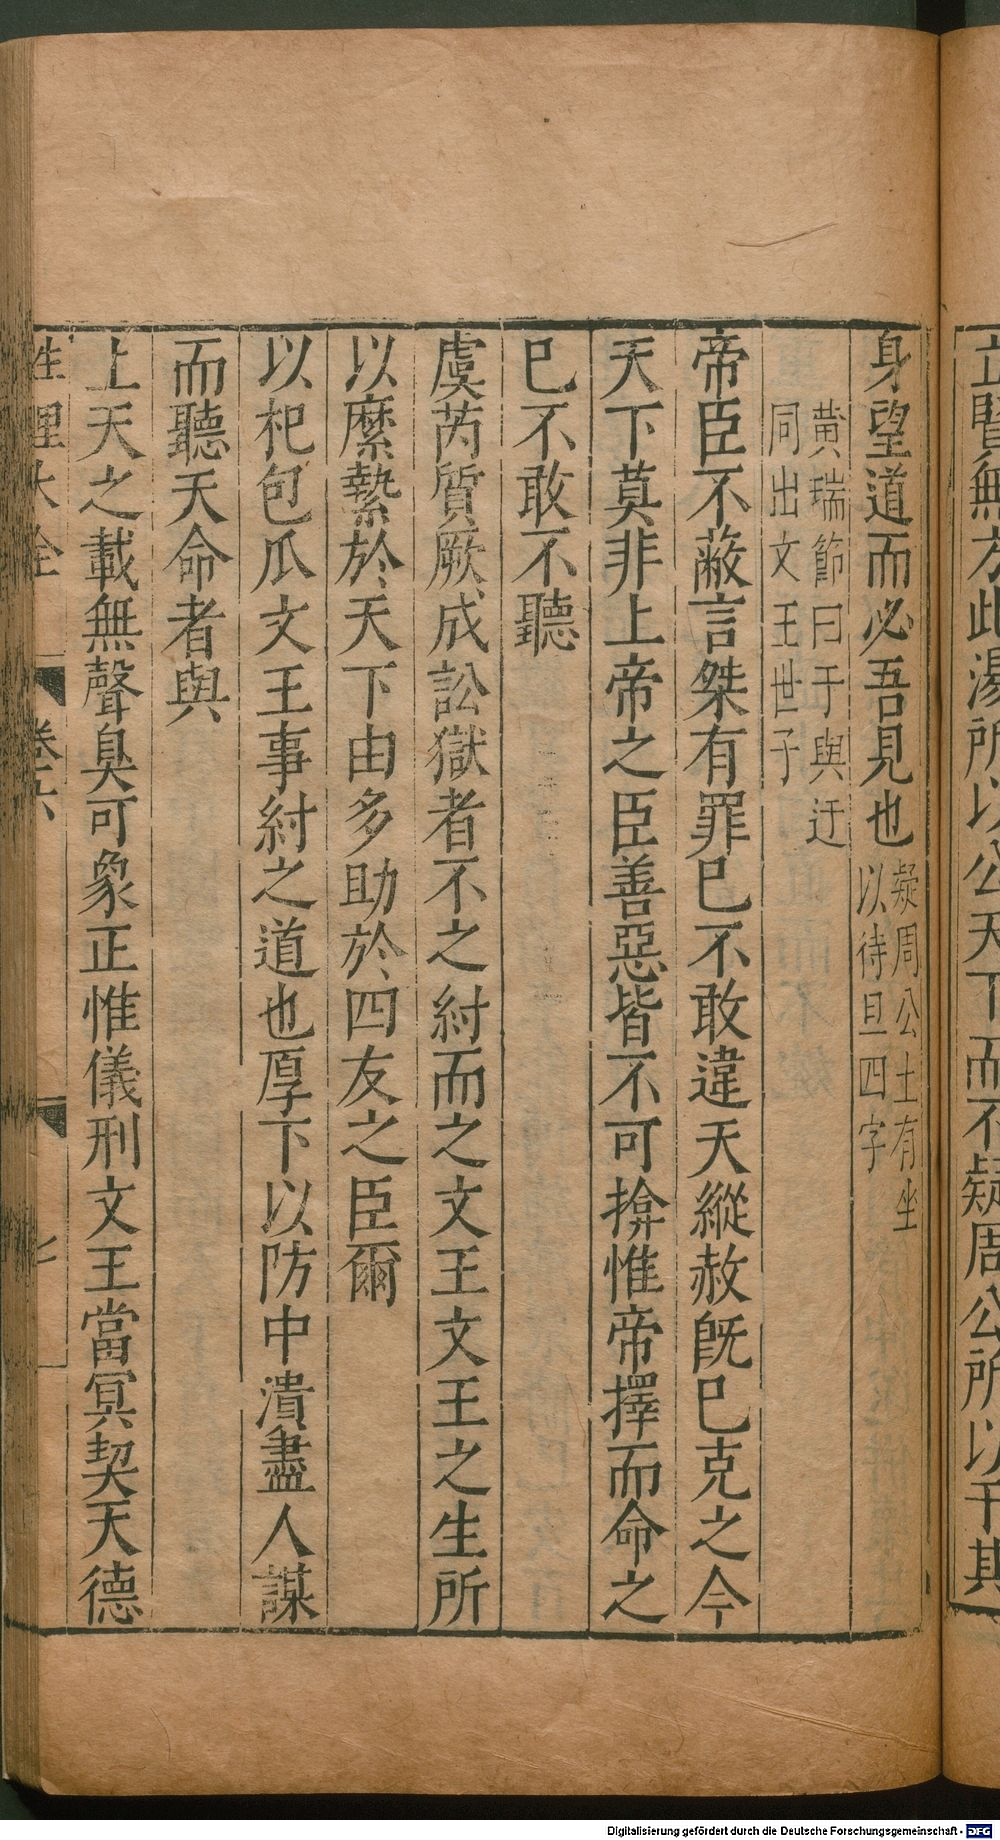 立賢無方此湯所以公天下而不疑周公所以于其
身望道而必吾見也疑周公上有坐以待旦四字
黄瑞節曰于與迂
同出文王世子
帝臣不蔽言桀有罪已不敢違天縱赦旣已克之今
天下莫非上帝之臣善惡皆不可揜惟帝擇而命之
已不敢不聽
虞芮質厥成訟獄者不之紂而之文王文王之生所
以縻縶於天下由多助於四友之臣爾
以杞包瓜文王事紂之道也厚下以防中潰盡人謀
而聽天命者與
上天之載無聲臭可象正惟儀刑文王當冥契天德
性理大全 卷六
Digitalisierung gefördert durch die Deutsche Forschungsgemeinschaft - DFG